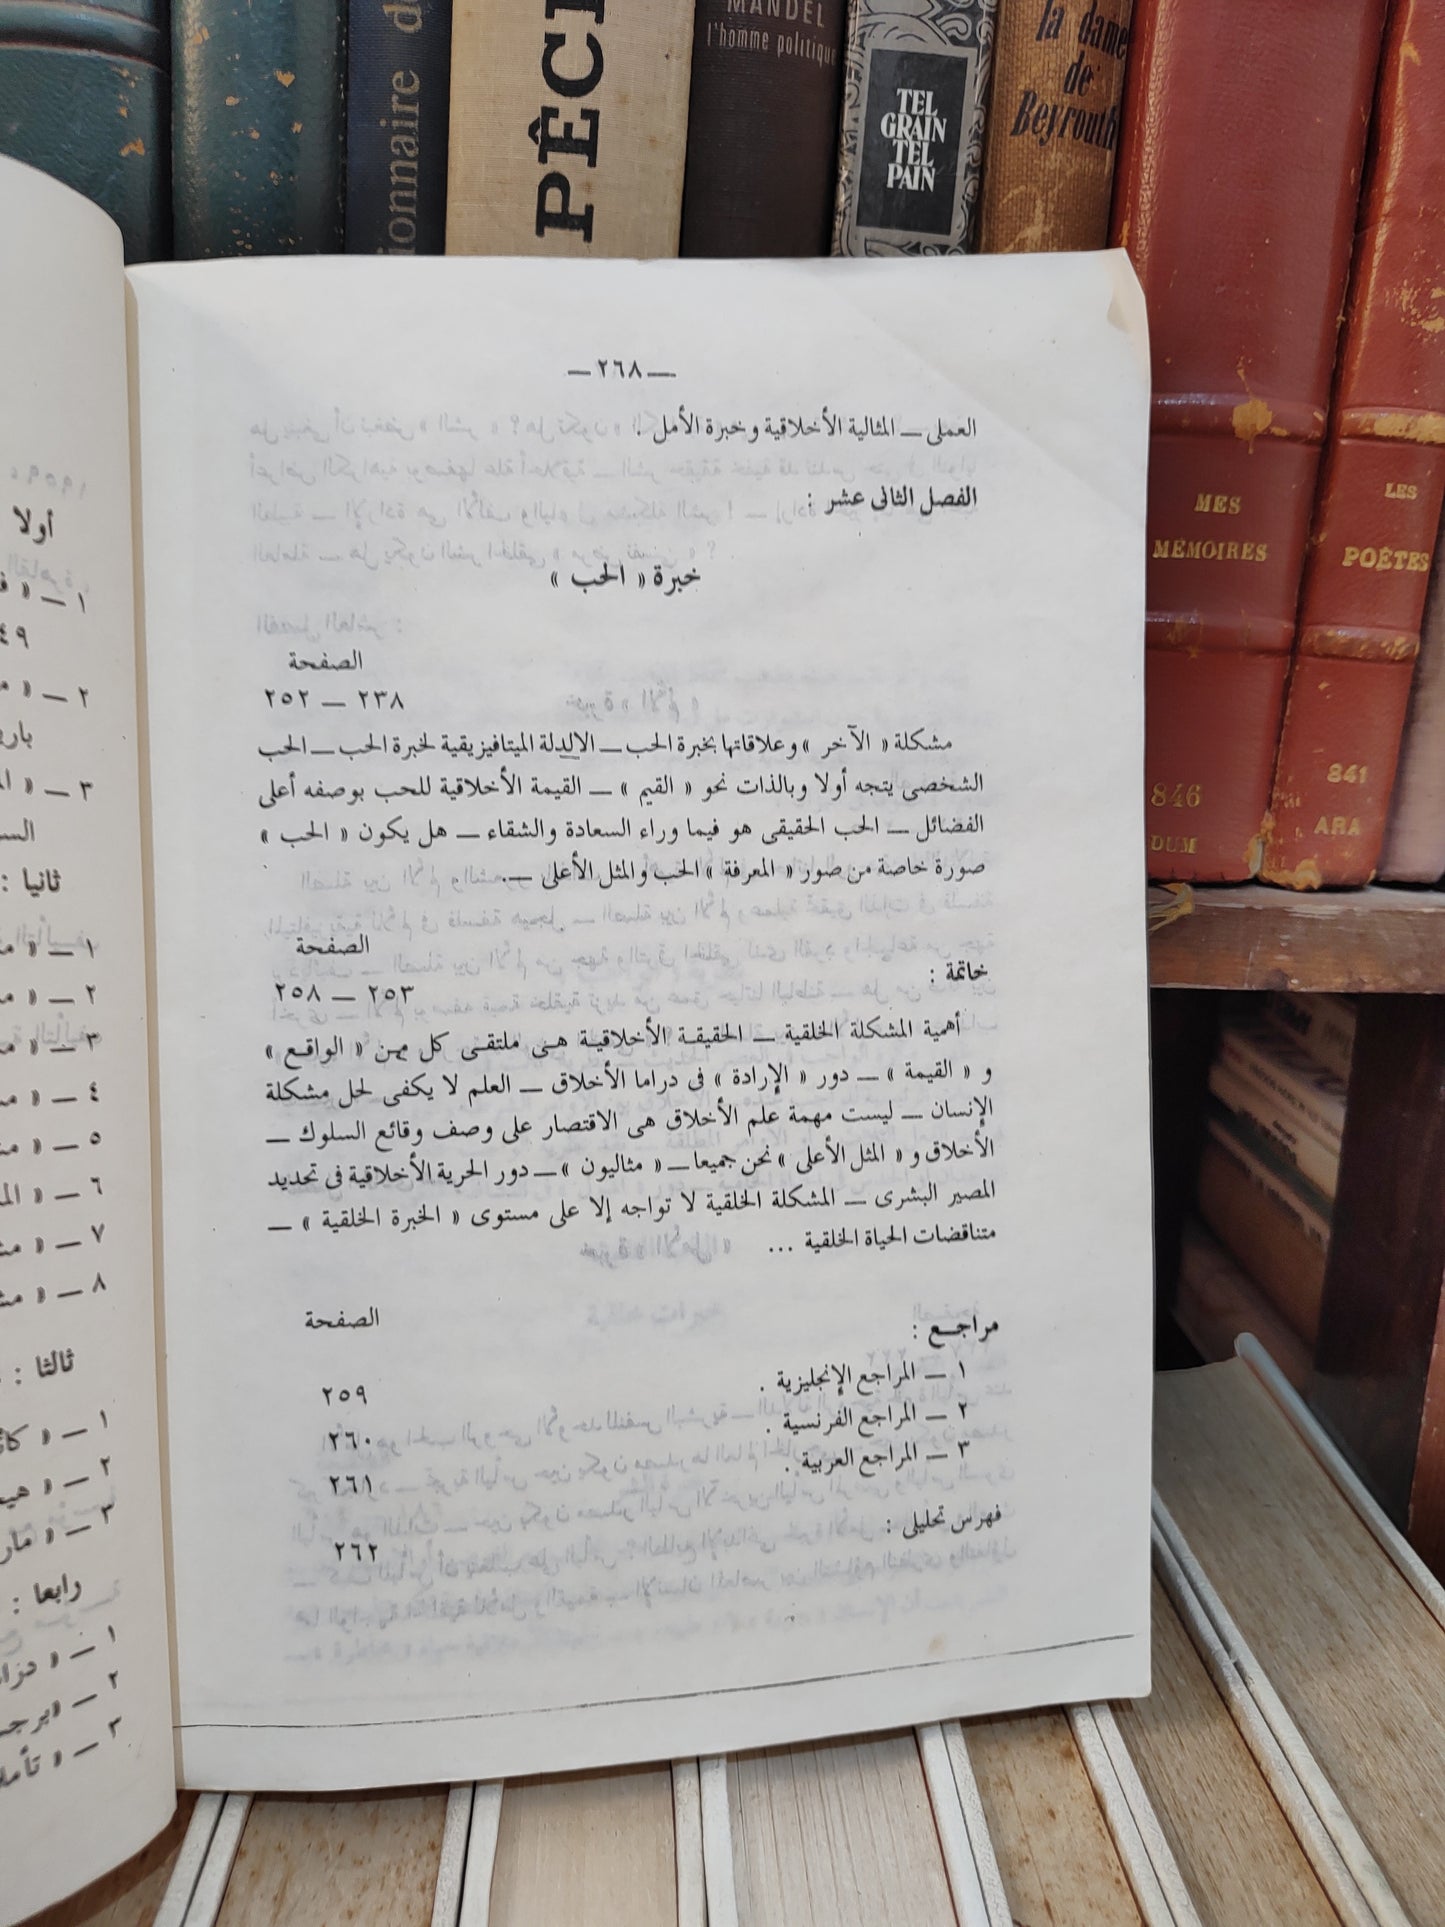 MANDEL
l'homme politique
PÊC
TEL
GRAIN
TEL
PAIN
la dame
de
Beyrouth
MES
MÉMOIRES
846
DUM
LES
POÈTES
841
ARA
— ٢٦٨ —
العملى — المثالية الأخلاقية وخبرة الأمل .
الفصل الثانى عشر :
خبرة « الحب »
الصفحة
٢٣٨ — ٢٥٢
مشكلة « الآخر » وعلاقاتها بخبرة الحب — الالدلة الميتافيزيقية لخبرة الحب — الحب
الشخصى يتجه أولا وبالذات نحو « القيم » — القيمة الأخلاقية للحب بوصفه أعلى
الفضائل — الحب الحقيقى هو فيما وراء السعادة والشقاء — هل يكون « الحب »
صورة خاصة من صور « المعرفة » الحب والمثل الأعلى — .
الصفحة
خاتمة :
٢٥٣ — ٢٥٨
أهمية المشكلة الخلقية — الحقيقة الأخلاقية هى ملتقى كل من « الواقع »
و « القيمة » — دور « الإرادة » فى دراما الأخلاق — العلم لا يكفى لحل مشكلة
الإنسان — ليست مهمة علم الأخلاق هى الاقتصار على وصف وقائع السلوك —
الأخلاق و « المثل الأعلى » نحن جميعا — « مثاليون » — دور الحرية الأخلاقية فى تحديد
المصير البشرى — المشكلة الخلقية لا تواجه إلا على مستوى « الخبرة الخلقية » —
متناقضات الحياة الخلقية ...
الصفحة
مراجع :
١ — المراجع الإنجليزية . ٢٥٩
٢ — المراجع الفرنسية . ٢٦٠
٣ — المراجع العربية . ٢٦١
فهرس تحليلى : ٢٦٢
أولا
ثانيا :
ثالثا :
رابعا :